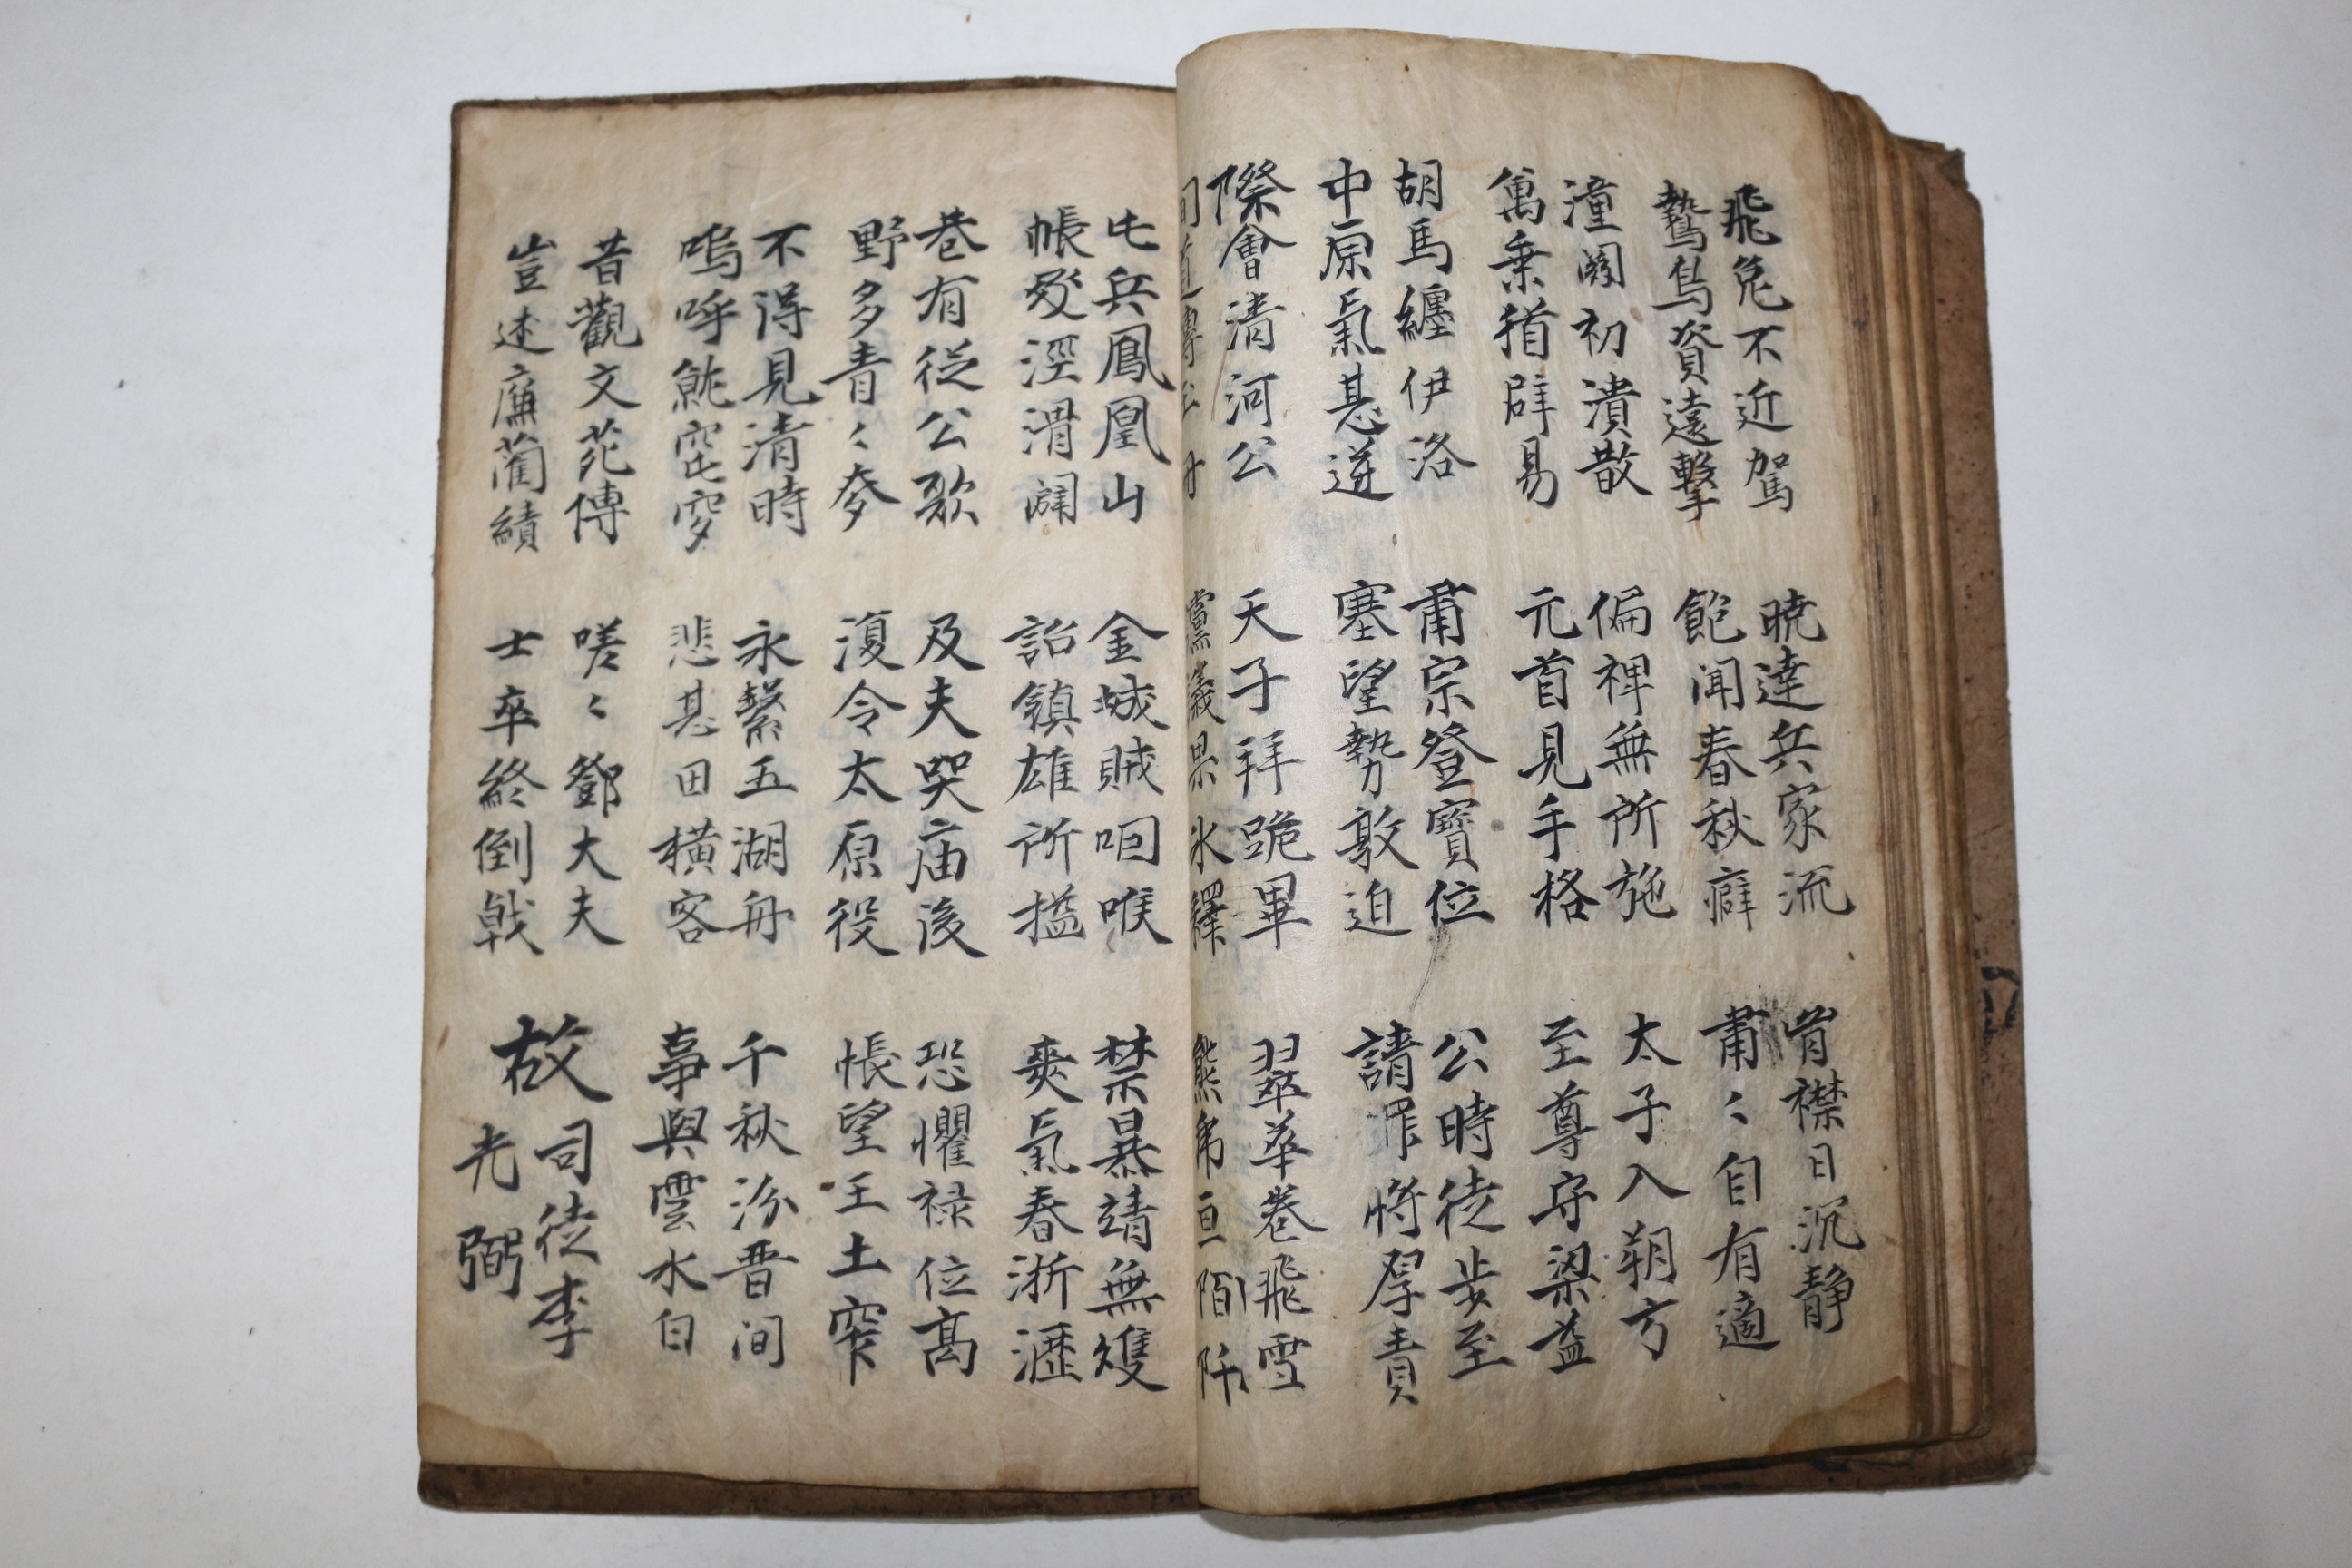 飛兔不近駕
鷙鳥資遠擊
曉達兵家流
飽聞春秋癖
胷襟日沉静
肅〻自有適
潼關初潰散
萬乗猶辟易
偏裨無所施
元首見手格
太子入朔方
至尊守梁益
胡馬纏伊洛
中原氣甚逆
肅宗登寶位
塞望勢敦迫
公時徒步至
請罪將厚責
際會清河公
間道傳玉冊
天子拜跪畢
讜議果氷繹
翠華卷飛雪
熊虎亘陌阡
屯兵鳳凰山
帳殿涇渭闢
金城賊咽喉
詔鎮雄所搤
禁暴靖無雙
爽氣春浙瀝
巷有從公歌
野多青〻麥
及夫哭庙後
復令太原役
恐懼禄位高
悵望王土窄
不得見清時
嗚呼就窀穸
永繫五湖舟
悲甚田横客
千秋汾晋間
事與雲水白
昔觀文苑傳
豈述廉藺績
嗟〻鄧大夫
士卒終倒戟
故司徒李光弼